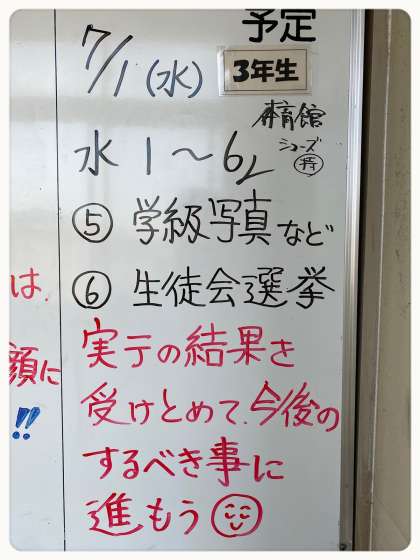 予定
7/1(水)
3年生
体育館
シューズ
持
水1〜6
⑤ 学級写真など
⑥ 生徒会選挙
は
実テの結果を
顔に
受けとめて、今後の
!!
するべき事に
進もう